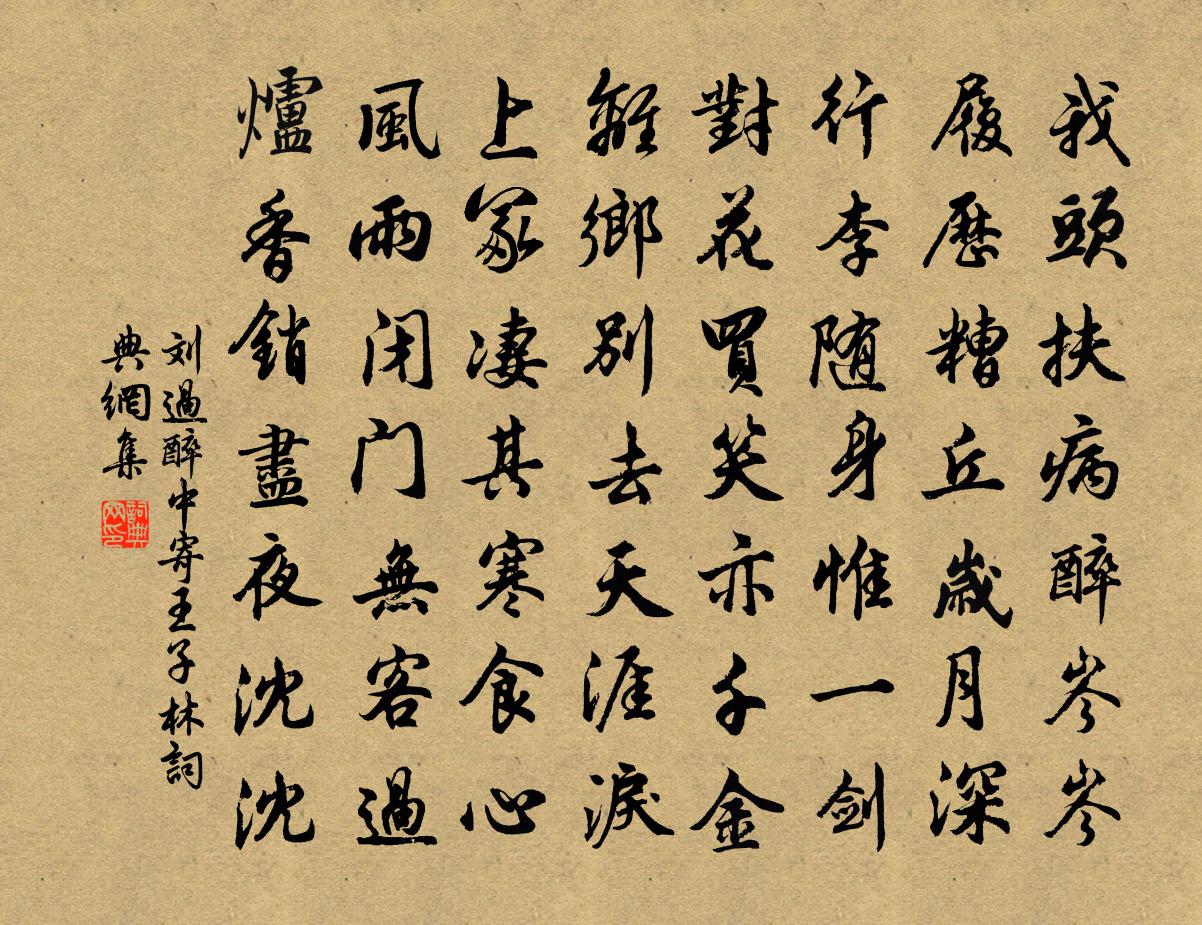 我頭扶病醉岑岑
履歷糟丘歲月深
行李随身惟一劍
對花買笑亦千金
離鄉別去天涯淚
上冢凄其寒食心
風雨闭门無客過
爐香銷盡夜沈沈
刘過醉中寄王子林詞
典網集
詞典网印